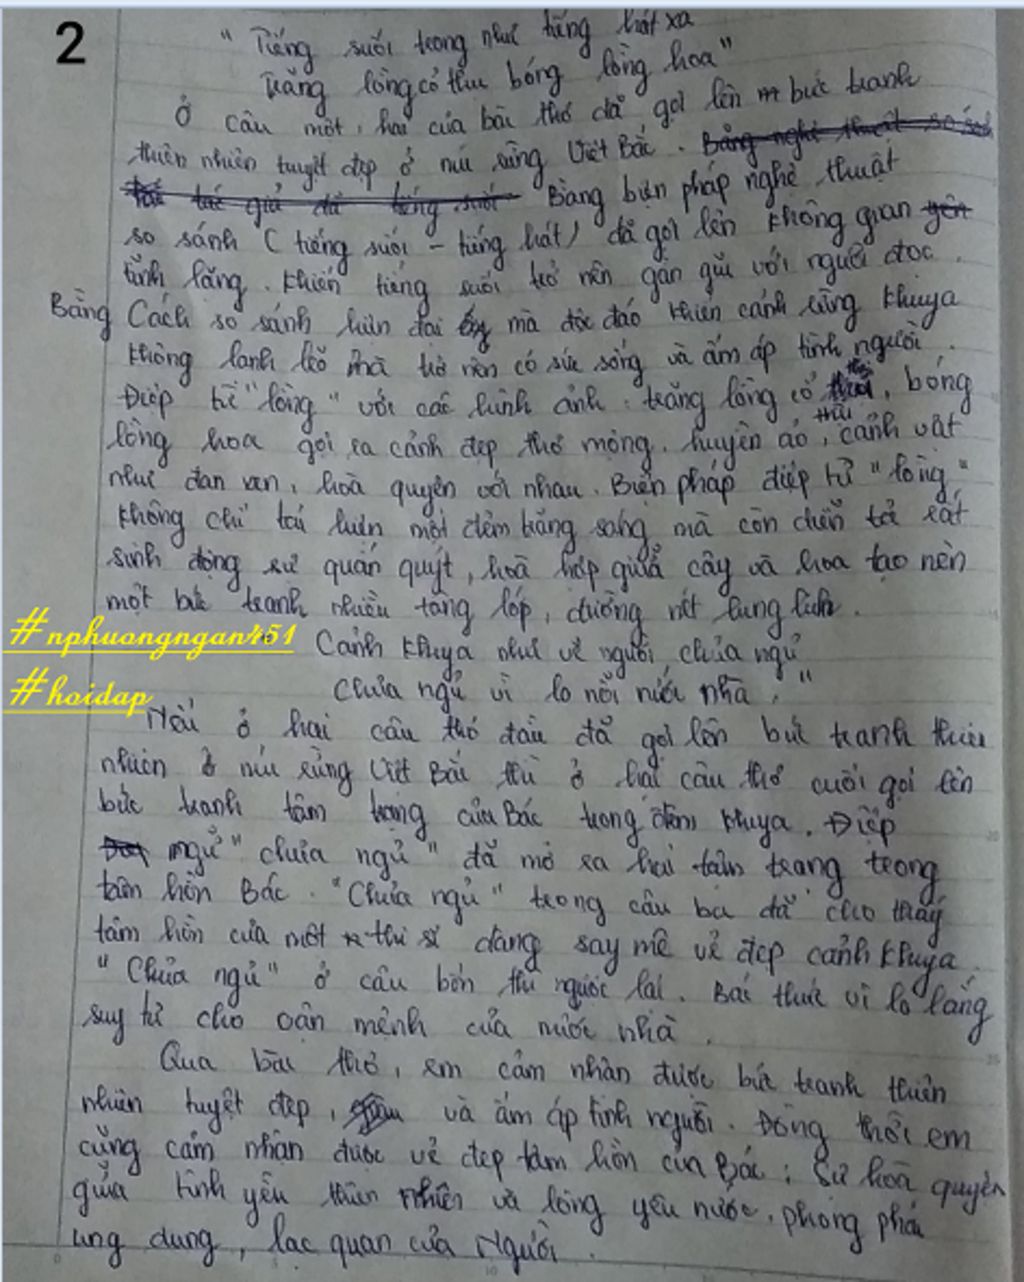 2
" Tiếng suối trong như tiếng hát xa
Trăng lồng cổ thụ bóng lồng hoa"
Ở câu một, hai của bài thơ đã gợi lên bức tranh
thiên nhiên tuyệt đẹp ở núi rừng Việt Bắc. Bằng nghệ thuật so sánh
tác giả đã tiếng suối Bằng biện pháp nghệ thuật
so sánh ( tiếng suối - tiếng hát) đã gợi lên không gian
tĩnh lặng. Khiến tiếng suối trở nên gần gũi với người đọc.
Bằng Cách so sánh hiện đại mà độc đáo khiến cảnh rừng khuya
không lạnh lẽo mà trở nên có sức sống và ấm áp tình người.
Điệp từ "lồng" với các hình ảnh: trăng lồng cổ thụ, bóng
lồng hoa gợi ra cảnh đẹp thơ mộng, huyền ảo, cảnh vật
như đan xen, hoà quyện với nhau. Biện pháp điệp từ "lồng"
không chỉ tái hiện một đêm trăng sáng mà còn diễn tả rất
sinh động sự quấn quýt, hoà hợp giữa cây và hoa tạo nên
một bức tranh nhiều tầng lớp, đường nét lung linh.
#nphuongngan451
" Cảnh khuya như vẽ người chưa ngủ
#hoidap
Chưa ngủ vì lo nỗi nước nhà."
Nếu ở hai câu thơ đầu đã gợi lên bức tranh thiên
nhiên ở núi rừng Việt Bắc thì ở hai câu thơ cuối gợi lên
bức tranh tâm trạng của Bác trong đêm khuya. Điệp
ngữ "chưa ngủ" đã mở ra hai tâm trạng trong
tâm hồn Bác. "Chưa ngủ" trong câu ba đã cho thấy
tâm hồn của một thi sĩ đang say mê vẻ đẹp cảnh khuya.
"Chưa ngủ" ở câu bốn thì ngược lại. Bác thức vì lo lắng
suy tư cho vận mệnh của nước nhà.
Qua bài thơ, em cảm nhận được bức tranh thiên
nhiên tuyệt đẹp, và ấm áp tình người. Đồng thời em
cũng cảm nhận được vẻ đẹp tâm hồn của Bác: Sự hoà quyện
giữa tình yêu thiên nhiên và lòng yêu nước, phong thái
ung dung, lạc quan của Người.